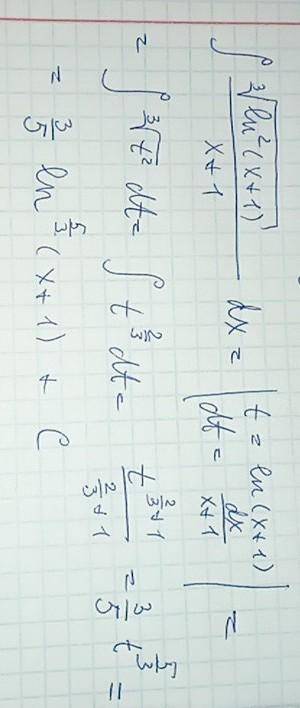 ∫ ∛(ln²(x+1)) / (x+1) dx = | t = ln(x+1) dt = dx/(x+1) | =
= ∫ ∛(t²) dt = ∫ t^(2/3) dt = t^(2/3+1) / (2/3+1) = 3/5 t^(5/3) =
= 3/5 ln^(5/3) (x+1) + C